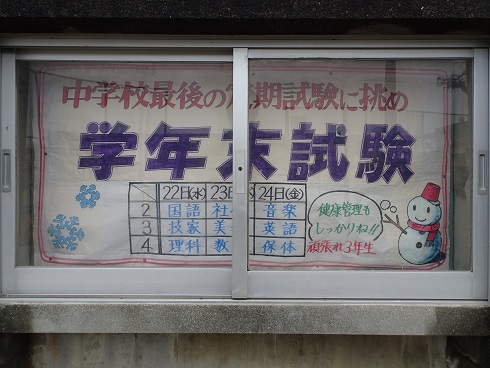 中学校最後の 期試験に挑め
学年末試験
22日(水) 23 24日(金)
2 国語 社 音楽
3 技家 美 英語
4 理科 数 保体
健康管理も
しっかりね!!
頑張れ3年生